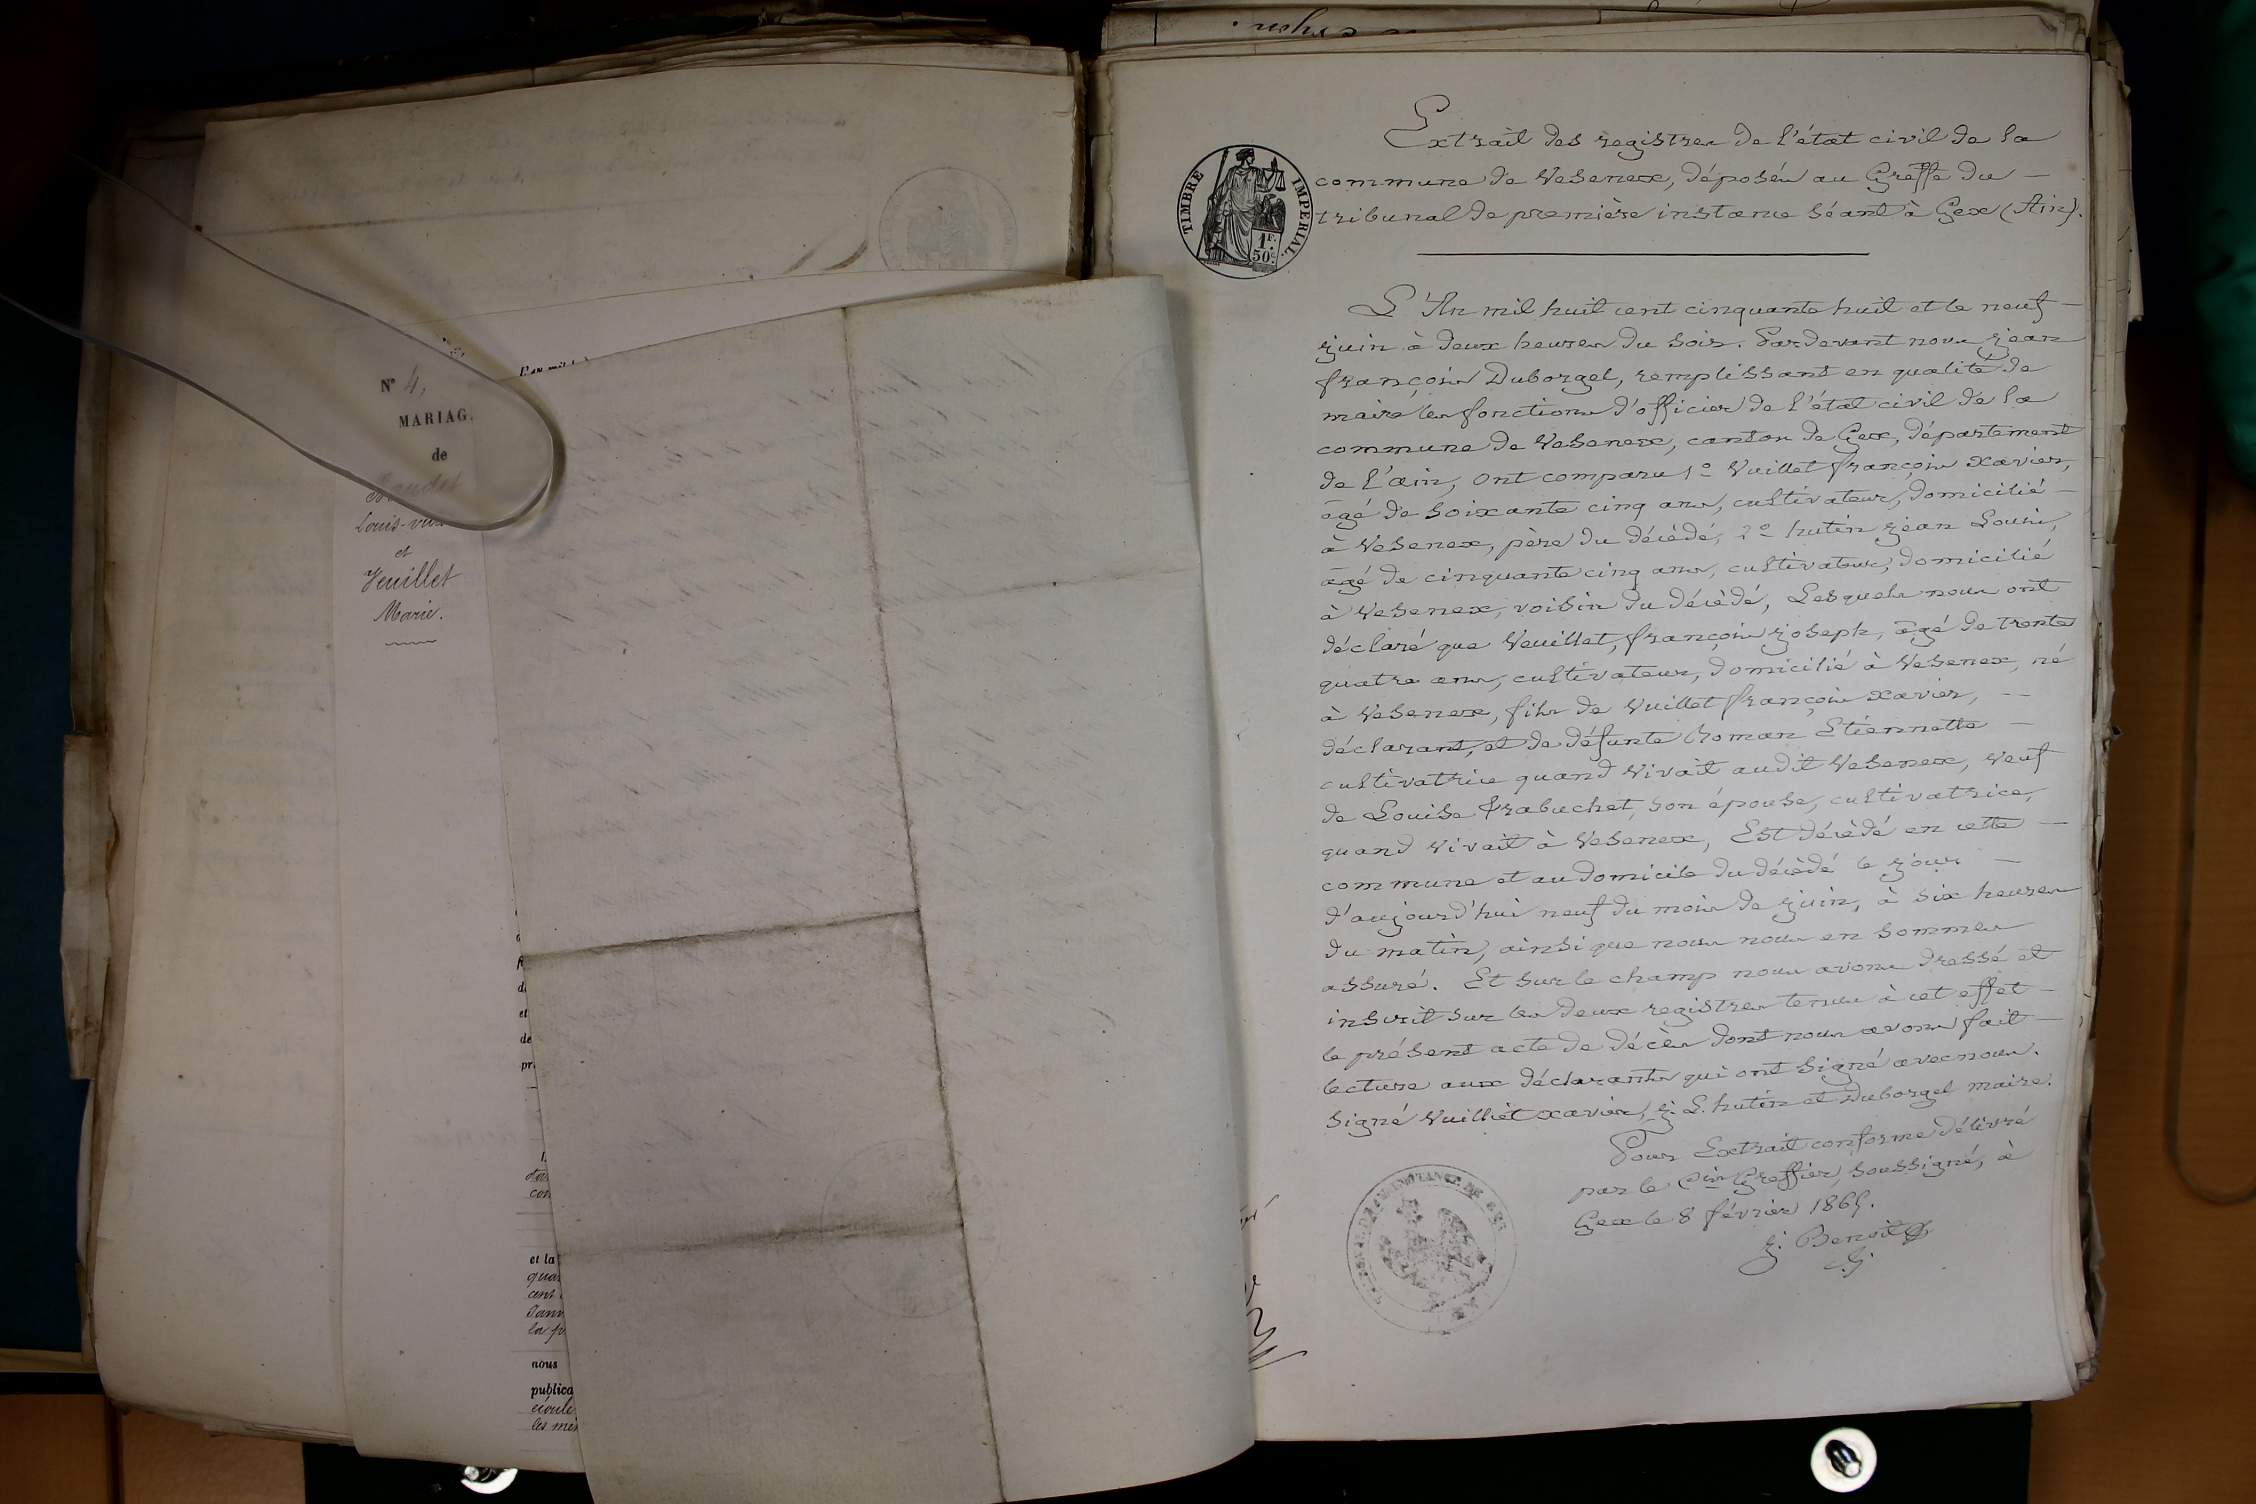 N° 4,
MARIAG.
de
Louis-
et
Veuillet
Marie.
L'an mil
et
de
et la
nous
publica
TIMBRE IMPERIAL.
1F. 50c.
Extrait des registres de l'état civil de la
commune de Vesenex, déposés au Greffe du —
tribunal de première instance séant à Gex (Ain).
L'An mil huit cent cinquante huit et le neuf —
juin à deux heures du soir. Pardevant nous jean
françois Duborgel, remplissant en qualité de
maire les fonctions d'officier de l'état civil de la
commune de Vesenex, canton de Gex, département
de l'ain, ont comparu 1° Vuillet françois Xavier,
âgé de soixante cinq ans, cultivateur, domicilié —
à Vesenex, père du décèdé, 2° hutin jean Louis,
âgé de cinquante cinq ans, cultivateur, domicilié
à Vesenex, voisin du décèdé, Lesquels nous ont
déclaré que Veuillet, françois joseph, âgé de trente
quatre ans, cultivateur, domicilié à Vesenex, né
à Vesenex, fils de Vuillet françois Xavier, —
déclarant, et de défunte Roman Etiennette —
cultivatrice quand vivait audit Vesenex, veuf
de Louise Trabuchet, son épouse, cultivatrice,
quand vivait à Vesenex, Est décèdé en cette —
commune et au domicile du décèdé le jour —
d'aujourd'hui neuf du mois de juin, à six heures
du matin, ainsi que nous nous en sommes
assuré. Et sur le champ nous avons dressé et
inscrit sur les deux registres tenus à cet effet —
le présent acte de décès dont nous avons fait —
lecture aux déclarants qui ont signé avec nous.
Signé Vuilliet Xavier, j. L. hutin et Duborgel maire.
Pour Extrait conforme délivré
par le Greffier, soussigné, à
Gex le 8 février 1865.
j. Benoit